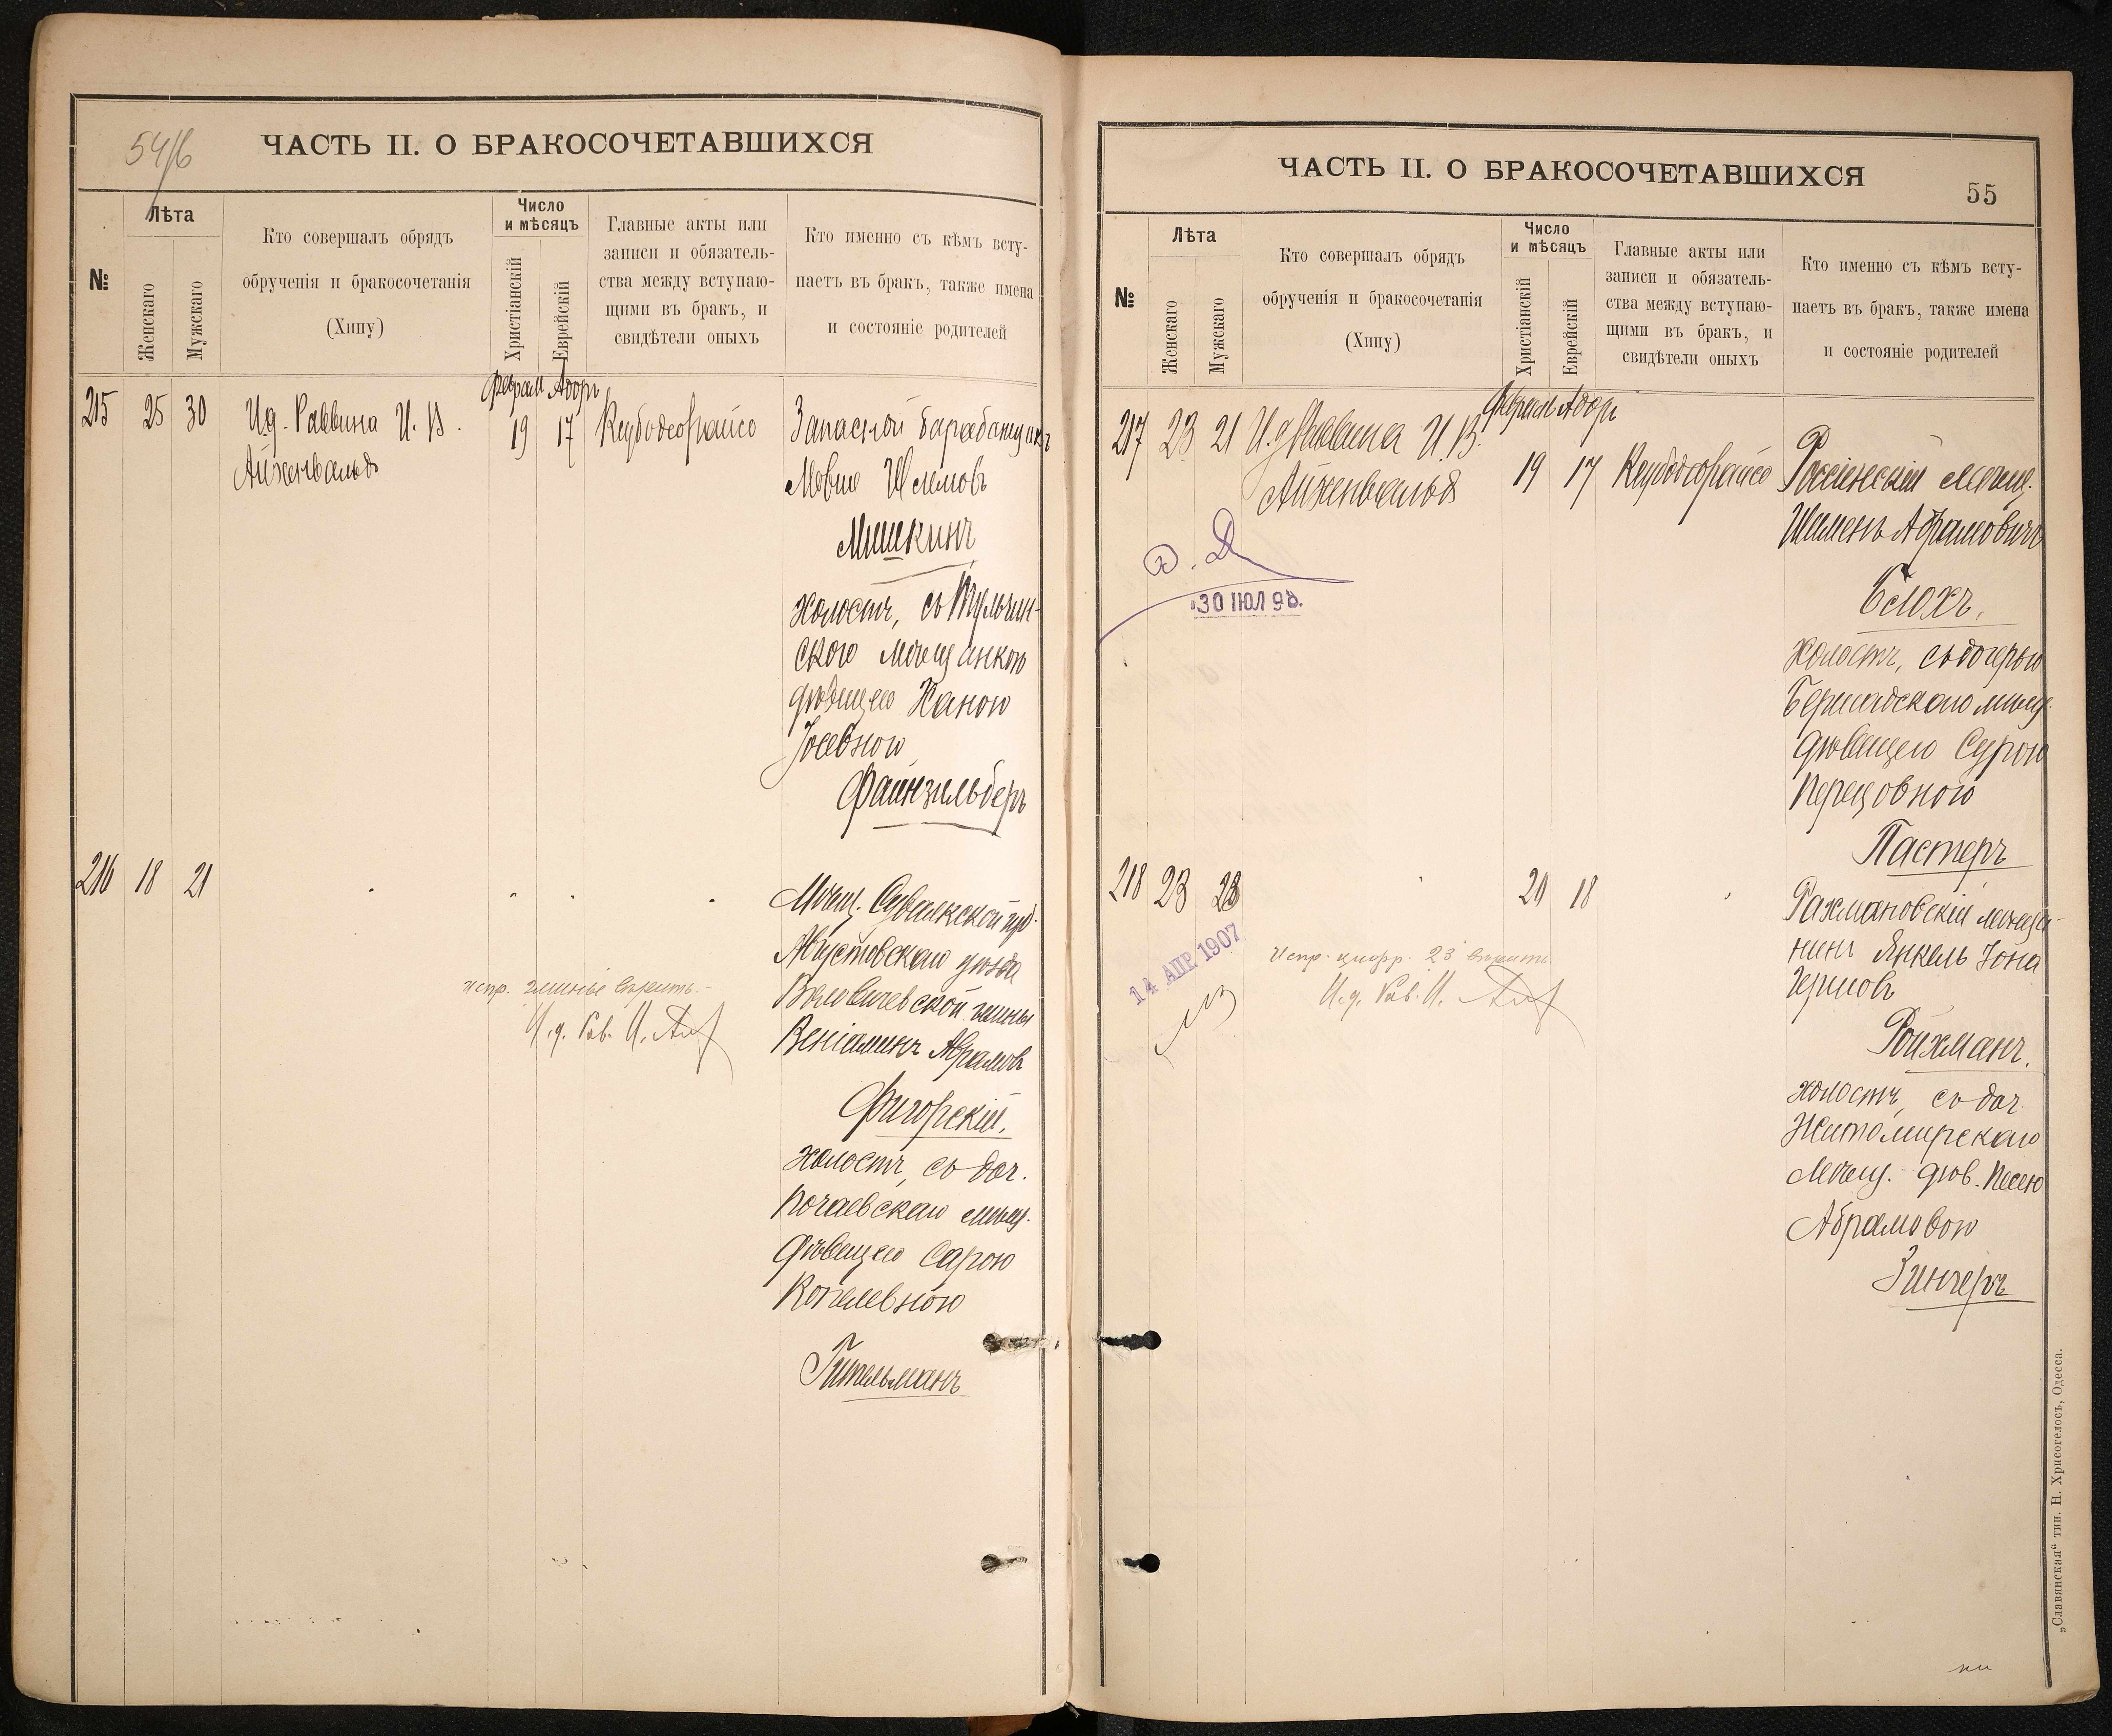 54/б
ЧАСТЬ II. О БРАКОСОЧЕТАВШИХСЯ
№
Лѣта
Женскаго
Мужскаго
Кто совершалъ обрядъ
обрученія и бракосочетанія
(Хипу)
Число
и мѣсяцъ
Христіанскій
Еврейскій
Главные акты или
записи и обязатель-
ства между вступаю-
щими въ бракъ, и
свидѣтели оныхъ
Кто именно съ кѣмъ всту-
паетъ въ бракъ, также имена
и состояніе родителей
Феврал Адоръ
215 25 30 И.д. Раввина И. В. 19 17 Кеубодсофайсо
Айженвальдъ
Запасной Барабанщикъ
Мовше Шлемовъ
Мишкинъ
холостъ, съ Тульчин-
скою мѣщанкою
дѣвицею Ханою
Іосевною
Файнзильберъ
216 18 21
Мѣщ. Сувалкской губ.
Августовскаго уѣзда
Воловичевской гмины
Веніаминъ Абрамовъ
Фигорскій.
холостъ, съ доч.
Почаевскаго мѣщ.
дѣвицею Сарою
Копелевною
Гительманъ
испр. гмины вѣрить.
И.д. Рав. И.
ЧАСТЬ II. О БРАКОСОЧЕТАВШИХСЯ
55
№
Лѣта
Женскаго
Мужскаго
Кто совершалъ обрядъ
обрученія и бракосочетанія
(Хипу)
Число
и мѣсяцъ
Христіанскій
Еврейскій
Главные акты или
записи и обязатель-
ства между вступаю-
щими въ бракъ, и
свидѣтели оныхъ
Кто именно съ кѣмъ всту-
паетъ въ бракъ, также имена
и состояніе родителей
Феврал Адоръ
217 23 21 И.д. Раввина И. В. 19 17 Кеубодсофайсо
Айженвальдъ
30 ІЮЛ 98.
Россіенскій мѣщ.
Шименъ Абрамовичъ
Блохъ,
холостъ, съ дочерью
Бершадскаго мѣщ.
дѣвицею Сурою
Перецовною
Пастеръ
218 23 23 20 18
14 АПР. 1907
испр. цифр. 23 вѣрить
И.д. Рав. И.
Рахмановскій мѣща-
нинъ Янкель Іона
Гершовъ
Ройхманъ.
холостъ, съ доч.
Житомирскаго
мѣщ. дѣв. Песею
Абрамовою
Зингеръ
„Славянская“ тип. Н. Хрисогелосъ, Одесса.